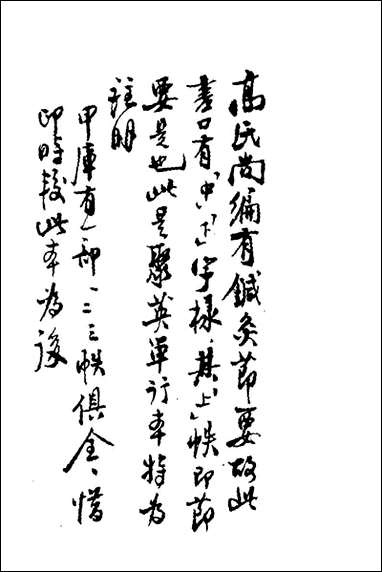 高氏尚編有鍼灸節要故此
書口有「中」「下」字樣、其「上」帙即節
要是也此是聚英單行本特為
註明
甲庫有一部、一二三帙俱全、惜
印時較此本為後